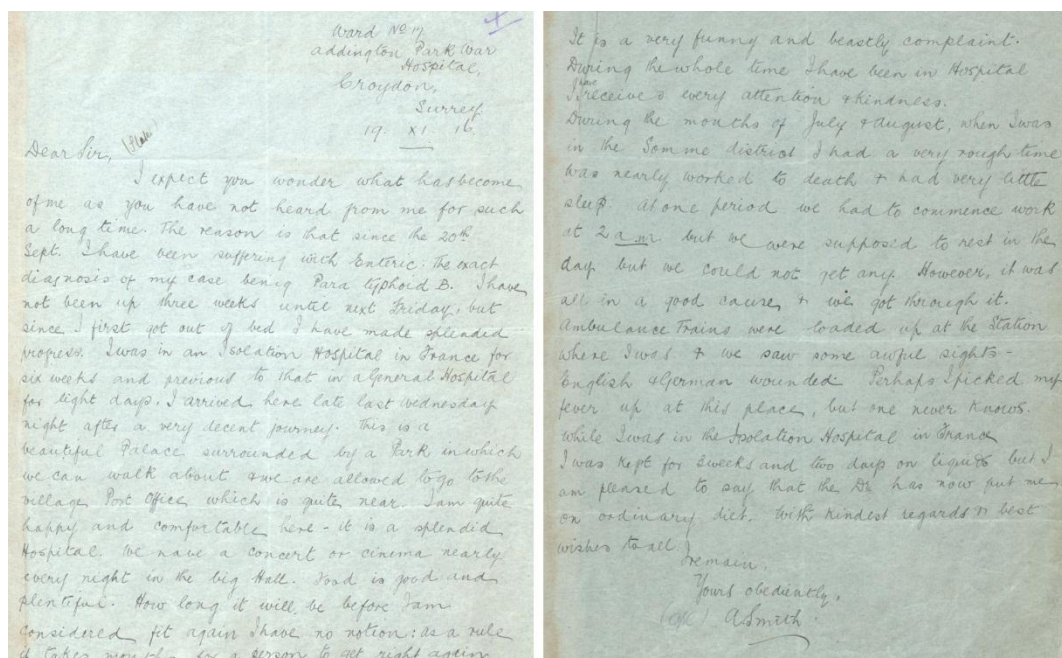 Ward No 17
Addington Park War
Hospital,
Croydon,
Surrey
19. XI 16.
Dear Sir,
I expect you wonder what has become
of me as you have not heard from me for such
a long time. The reason is that since the 20th
Sept. I have been suffering with Enteric: the exact
diagnosis of my case being Para typhoid B. I have
not been up three weeks until next Friday, but
since I first got out of bed I have made splendid
progress. I was in an Isolation Hospital in France for
six weeks and previous to that in a General Hospital
for eight days. I arrived here late last Wednesday
night after a very decent journey. This is a
beautiful Palace surrounded by a Park in which
we can walk about & we are allowed to go to the
village Post Office which is quite near. I am quite
happy and comfortable here - it is a splendid
Hospital. We have a concert or cinema nearly
every night in the big Hall. Food is good and
plentiful. How long it will be before I am
considered fit again I have no notion: as a rule
it takes for a person to get right again
It is a very funny and beastly complaint.
During the whole time I have been in Hospital
I receive every attention & kindness.
During the months of July & August, when I was
in the Somme district I had a very rough time
was nearly worked to death & had very little
sleep. At one period we had to commence work
at 2 a.m. but we were supposed to rest in the
day but we could not get any. However, it was
all in a good cause & we got through it.
Ambulance Trains were loaded up at the Station
where I was & we saw some awful sights -
English & German wounded. Perhaps I picked my
fever up at this place, but one never knows.
While I was in the Isolation Hospital in France
I was kept for 3 weeks and two days on liquids but I
am pleased to say that the Dr. has now put me
on ordinary diet. With kindest regards & best
wishes to all
I remain.
Yours obediently,
A Smith.